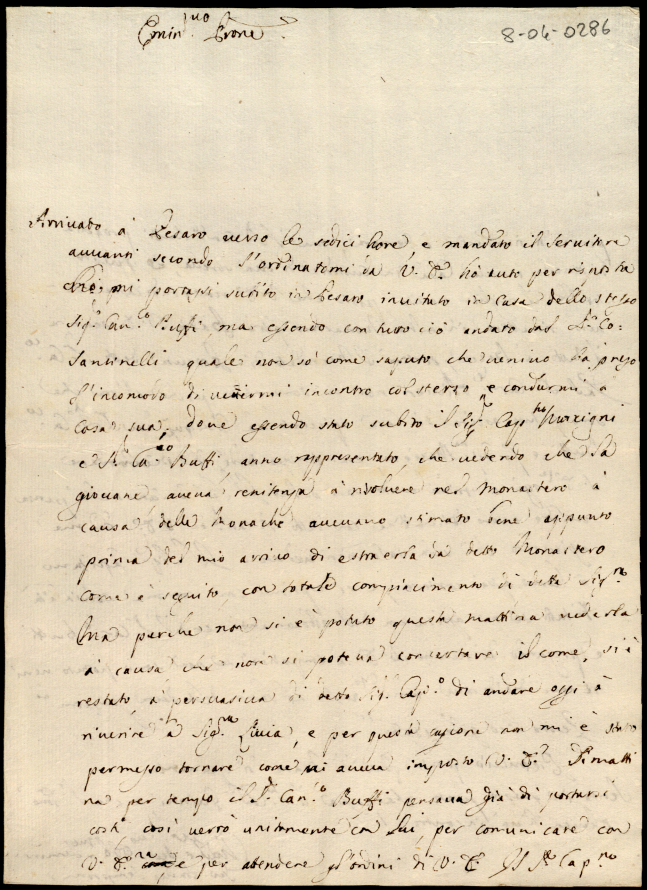 Emin.mo Prone
8-04-0286
Arrivato à Pesaro verso le sedici hore e mandato il servitore
avvanti secondo l'ordinatomi da V. E. hò auto per risposta
che mi portassi subito in Pesaro invitato in Casa dello stesso
Sig.r Can.co Buffi ma essendo con tutto ciò andato dal S.r Co:
Santinelli quale non sò come saputo che venivo hà preso
l'incomodo di venirmi incontro col sterzo e condurmi a
Casa sua, dove essendo stato subito il Sig.r Cap.no
e S.r Ca.co Buffi, anno rappresentato, che vedendo che la
giovane aveva renitenza à risolvere nel Monastero à
causa delle Monache avevano stimato bene appunto
prima del mio arrivo di estraerla da detto Monastero
come è seguito con totale compiacimento di dette Sig.re
Ma perche non si è potuto questa mattina vederla
à causa che non si poteva concertare il come, si è
restato, à persuasiva di detto Sig. Cap.o di andare oggi à
riverire la Sig.ra Livia, e per questa cagione non mi è stato
permesso tornare come mi aveva imposto V. E. Dimatti
na per tempo il S.r Can.co Buffi pensava già di portarsi
costì così verrò unitamente con Lui, per comunicare con
V. E. e per attendere gl'ordini di V. E. Il S.r Cap.no